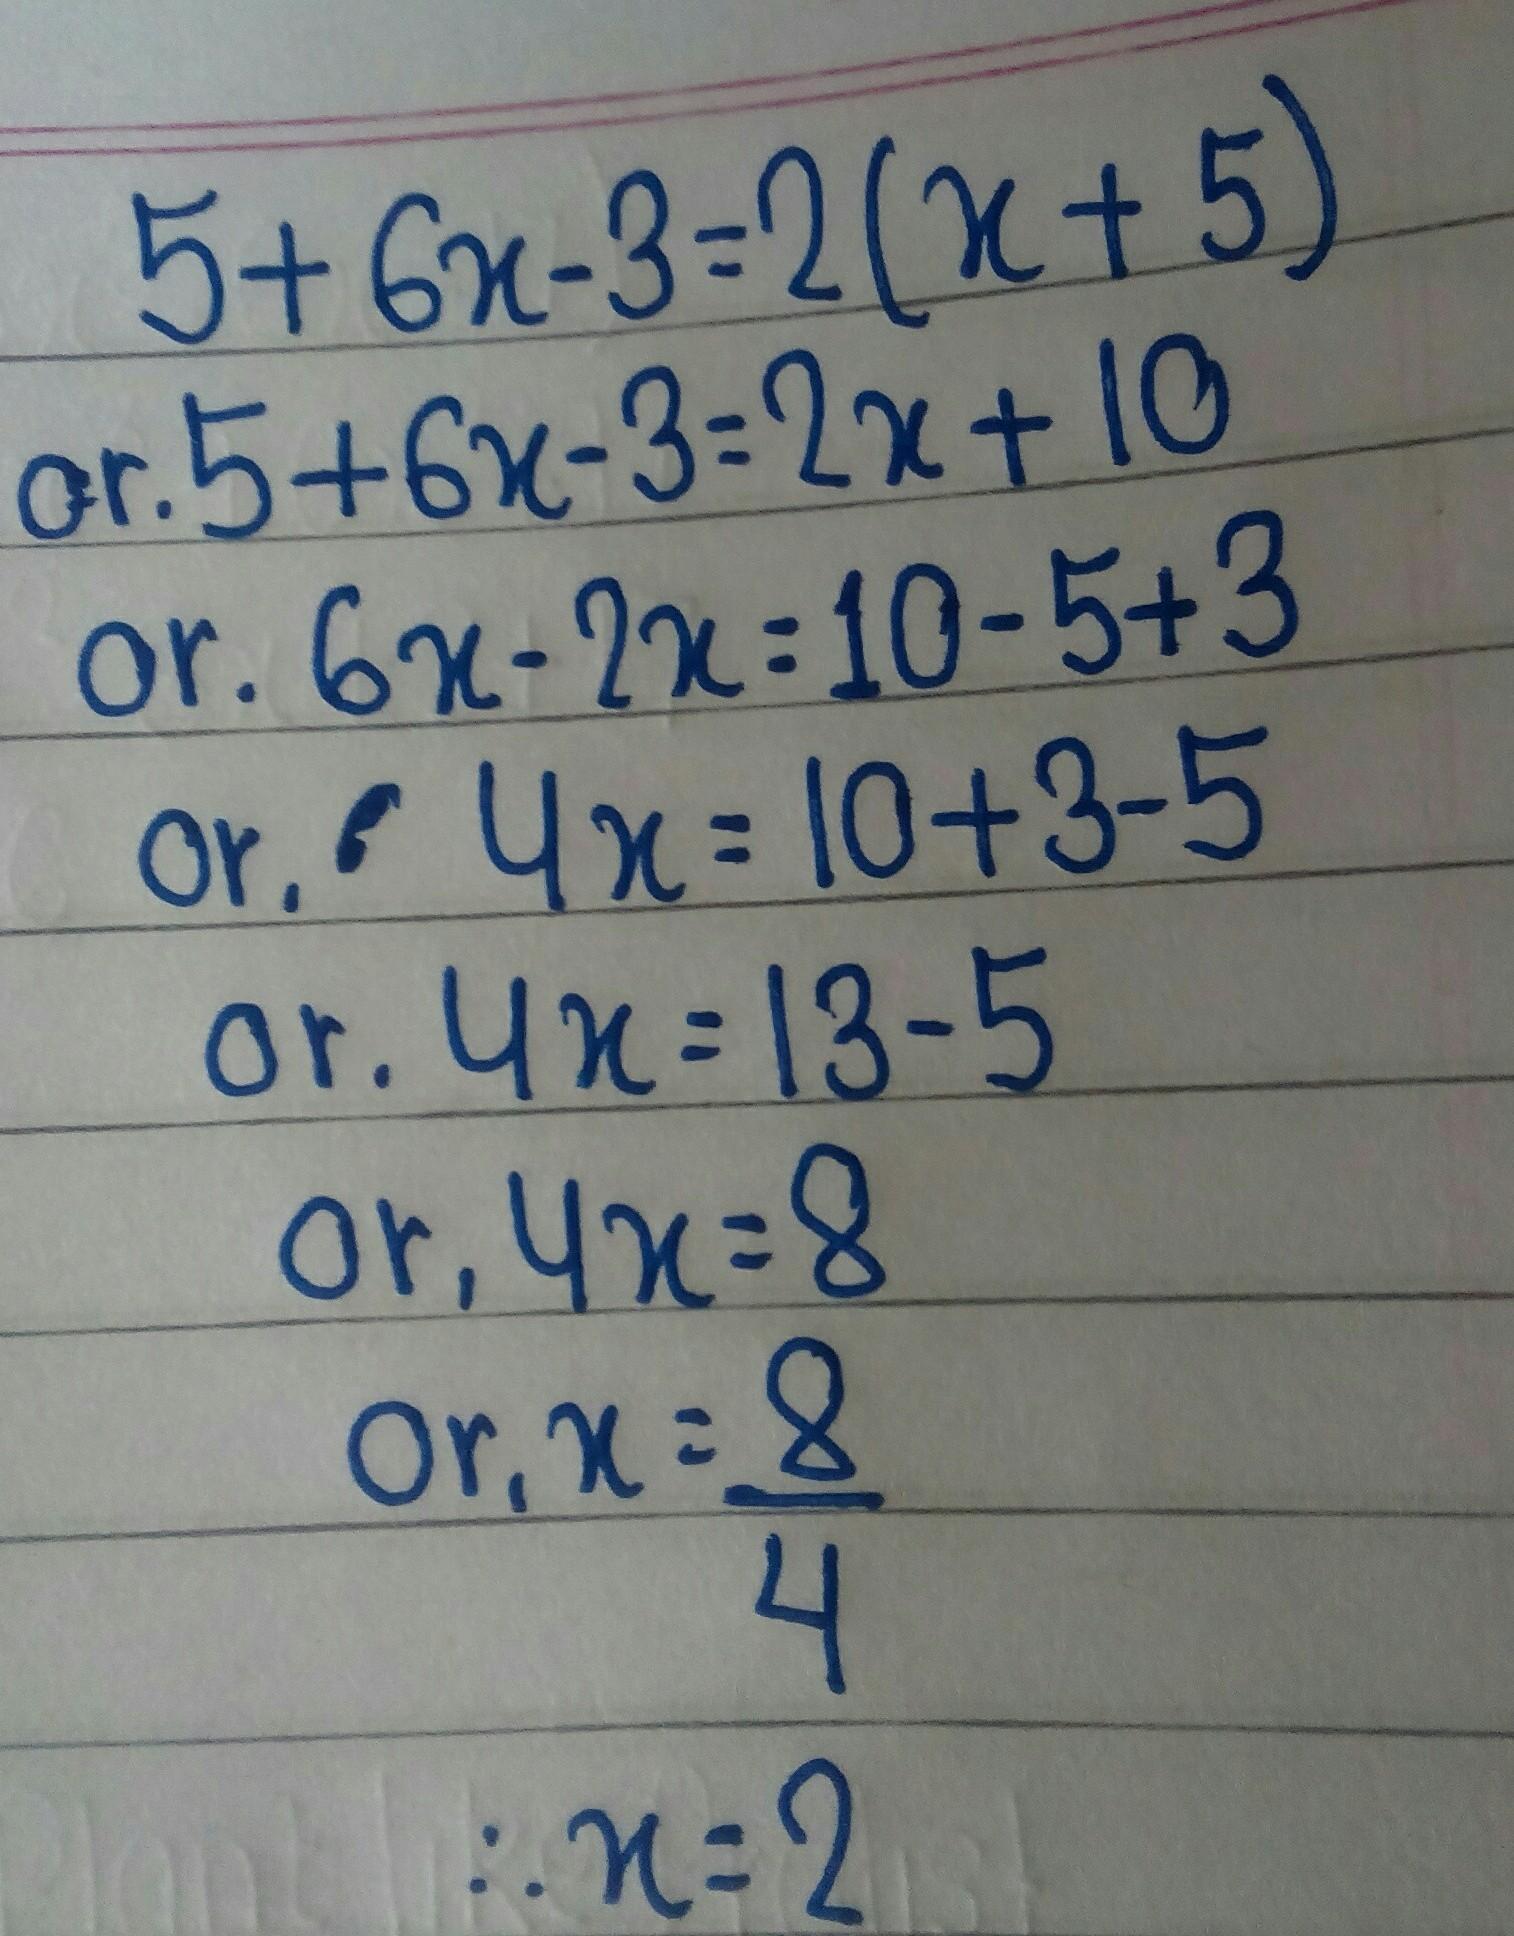 5+6x-3=2(x+5)
or. 5+6x-3=2x+10
or. 6x-2x=10-5+3
or, 4x=10+3-5
or. 4x=13-5
or, 4x=8
or, x=8/4
∴ x=2